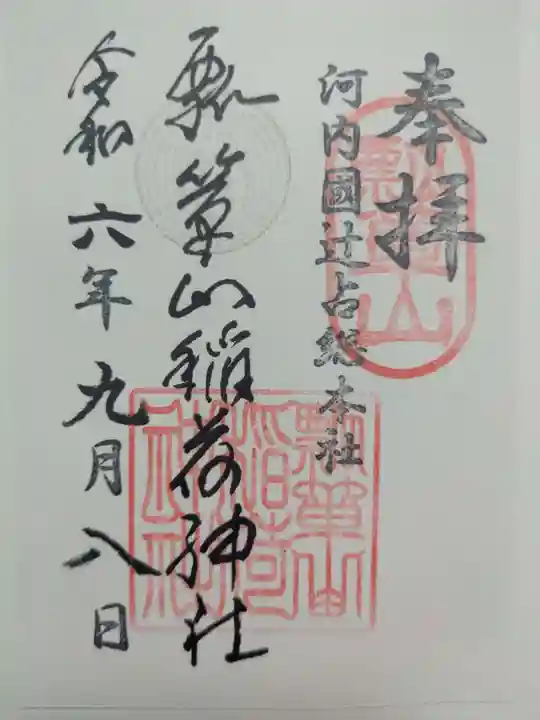 奉拝
河内國辻占総本社
瓢箪山稲荷神社
令和六年九月八日
瓢箪山
瓢箪山稲荷神社